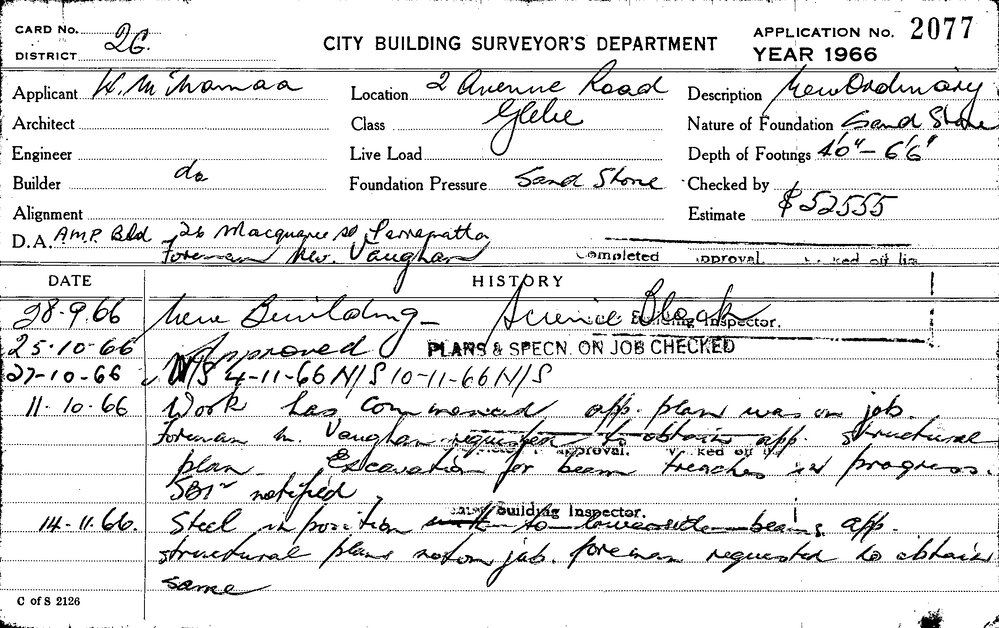 CARD No. 2G. CITY BUILDING SURVEYOR'S DEPARTMENT APPLICATION No. 2077
DISTRICT YEAR 1966
Applicant Location 2 Avenue Road Description New Ordinary
Architect Class Glebe Nature of Foundation Sand Stone
Engineer Live Load Depth of Footings 4'0" – 6'6"
Builder do Foundation Pressure Sand Stone Checked by
Alignment Estimate $52555
D.A. AMP. Bld 26 Macquarie St Parramatta
Foreman Vaughan Completed approval. ked off
DATE HISTORY
28·9·66 New Building – Science Block
Building Inspector.
25·10·66 Approved PLANS & SPECN. ON JOB CHECKED
27-10-66 N/S 4-11-66 N/S 10-11-66 N/S
11·10·66 Work has commenced app. plan was on job.
Foreman M. Vaughan requested to obtain app. structural
approval. ked off
plan. Excavation for beam trenches in progress.
notified
Building Inspector.
14-11.66. Steel in position to beams app.
structural plans not on job. foreman requested to obtain
same
C of S 2126